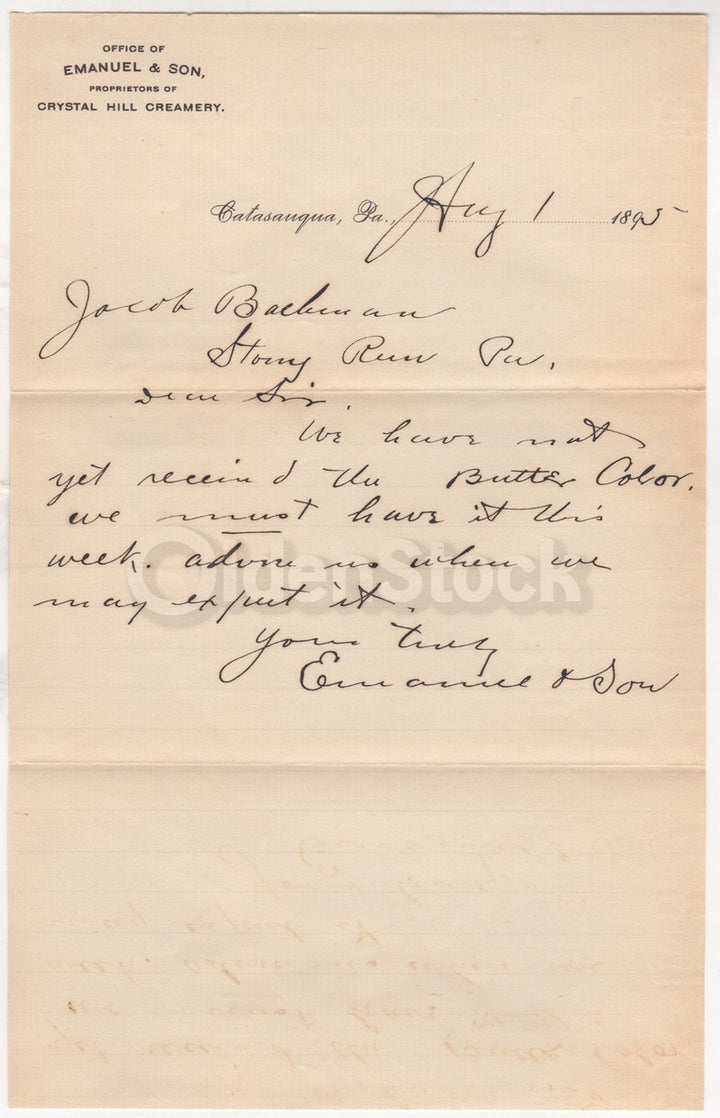 OFFICE OF
EMANUEL & SON,
PROPRIETORS OF
CRYSTAL HILL CREAMERY.
Catasauqua, Pa., Aug 1 1895
Jacob Bachman
Stony Run Pa.
Dear Sir.
We have not
yet receiv'd the Butter Color.
we must have it this
week. advise us when we
may expect it.
Yours truly
Emanuel & Son
OldenStock